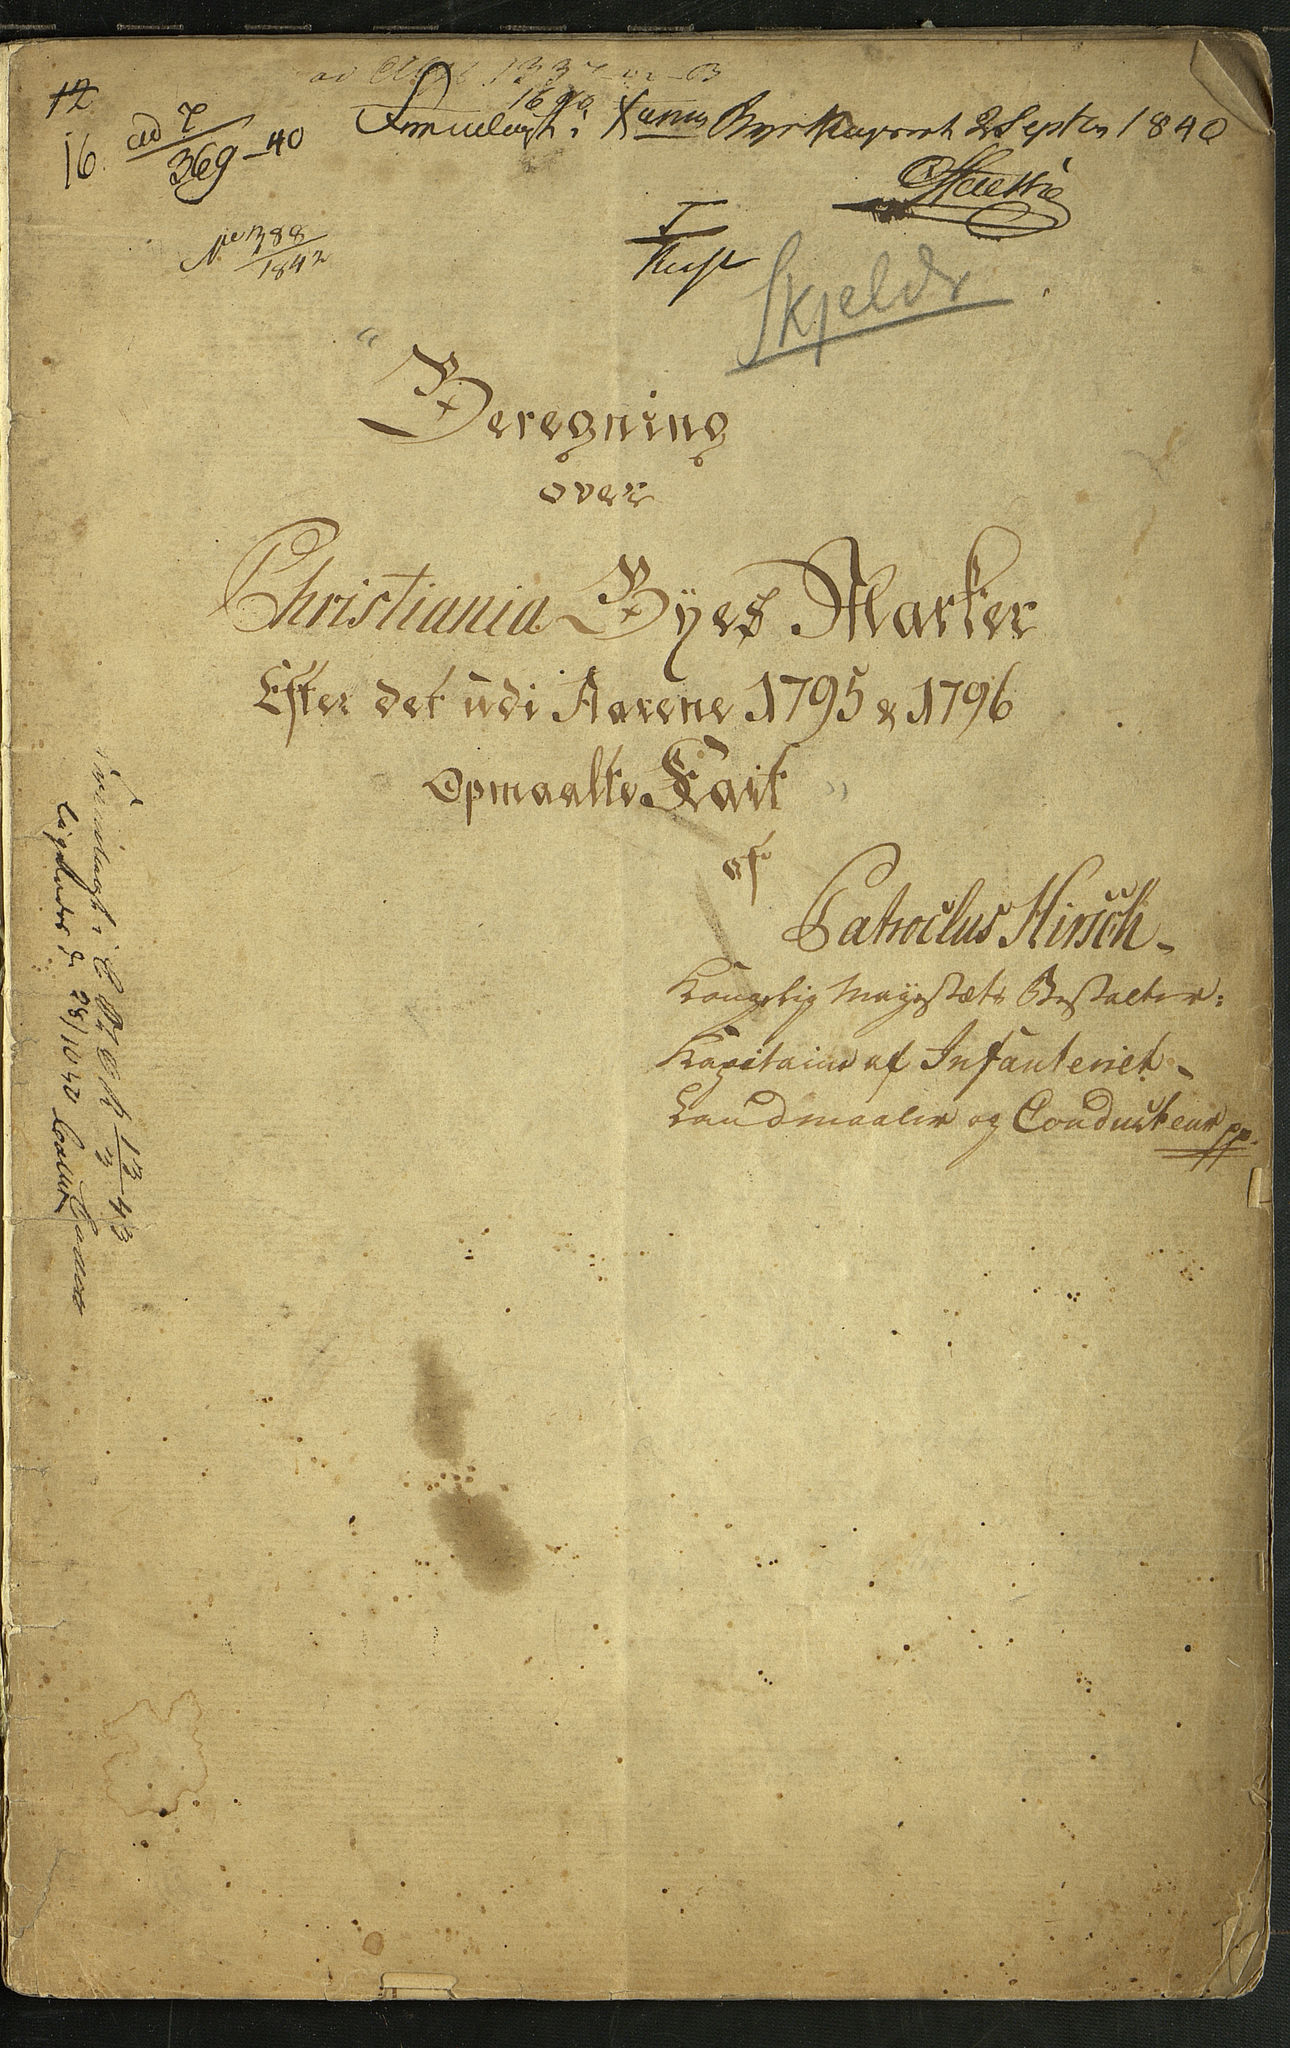 12
16.
ad 7/369-40
Fremlagt i Xania Byes 2 Septbr 1840
No 388/1842
Skjeldr
"Beregning
over
Christiania Byes Marker
Efter det udi Aarene 1795 & 1796
Opmaalte Kart"
af
Patroclus Hirsch-
Kongelig Mayestæts Bestalter:
Kapitaine af Infanteriet-
Landmaaler og Conducteur pp.
Fremlagt i 13/3 43
ligeledes d. 28/10 42